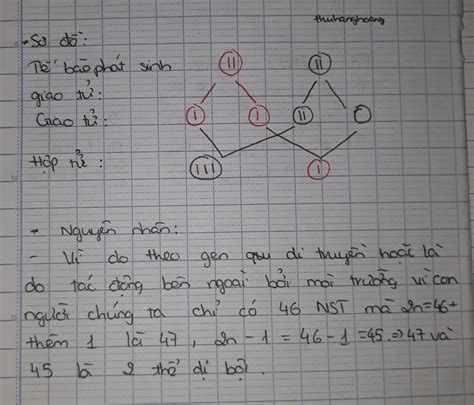 thuhanghoang
- Sơ đồ:
Tế bào phát sinh
giao tử: II II
Giao tử: I I II O
Hợp tử: III I
* Nguyên nhân:
- Vì do theo gen qui di truyền hoặc là
do tác động bên ngoài bởi môi trường vì con
người chúng ta chỉ có 46 NST mà 2n=46+
thêm 1 là 47, 2n - 1 = 46 - 1 = 45. ⇒ 47 và
45 là 2 thể dị bội.